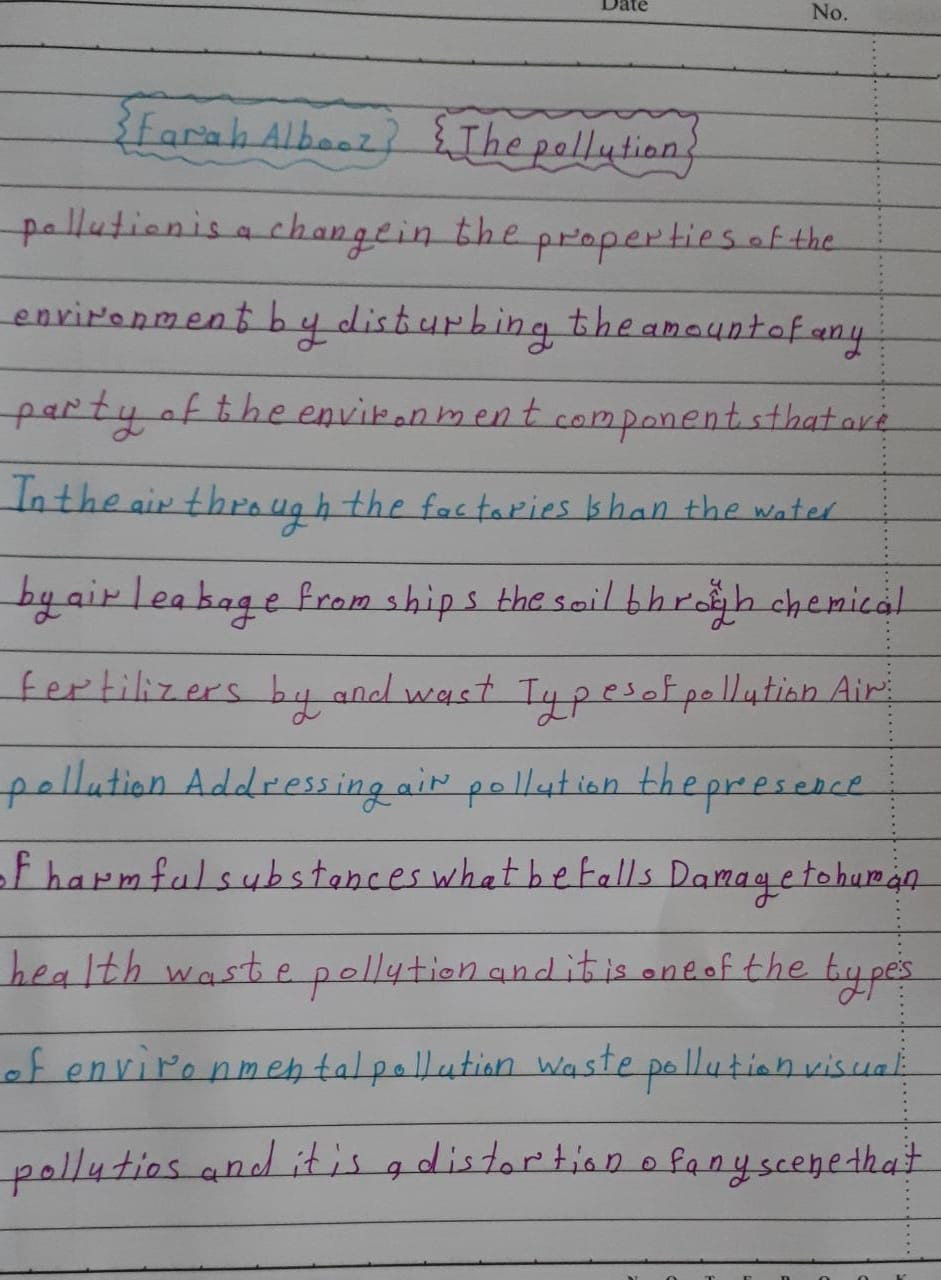 Date No.
{Farah Albooz} {The pollution}
pollution is a change in the properties of the
environment by disturbing the amount of any
party of the environment components that are
In the air through the factories than the water
by air leakage from ships the soil through chemical
fertilizers by and wast Types of pollution Air
pollution Addressing air pollution the presence
of harmful substances what befalls Damage to human
health waste pollution and it is one of the types
of environmental pollution waste pollution visual
pollutios and it is a distortion of any scene that